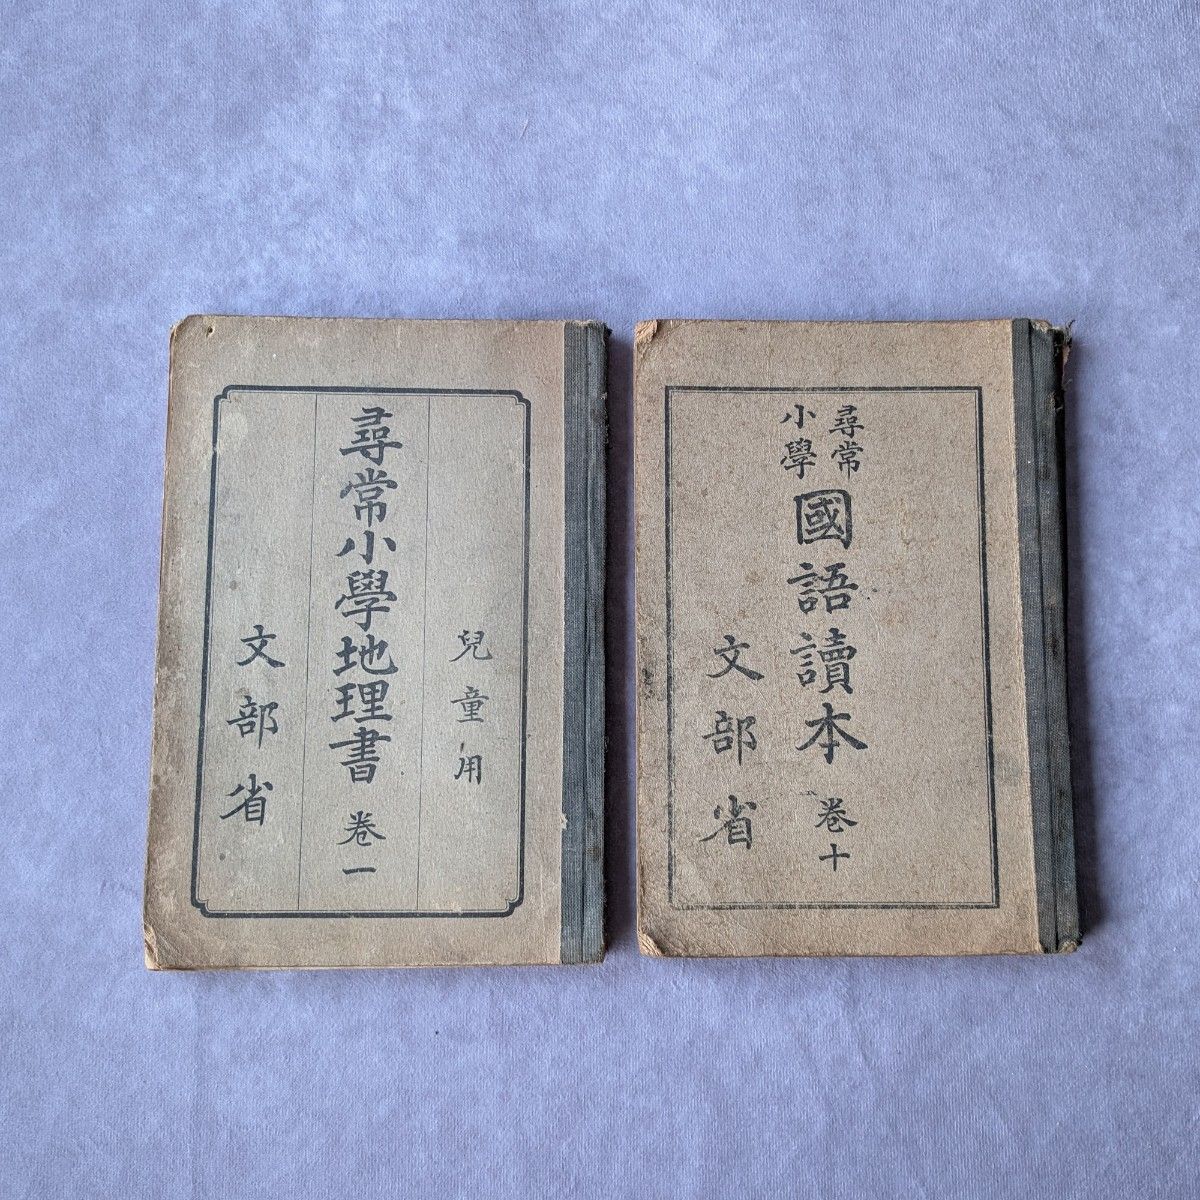 兒童用
尋常小學地理書 卷一
文部省
尋常
小學
國語讀本 卷十
文部省